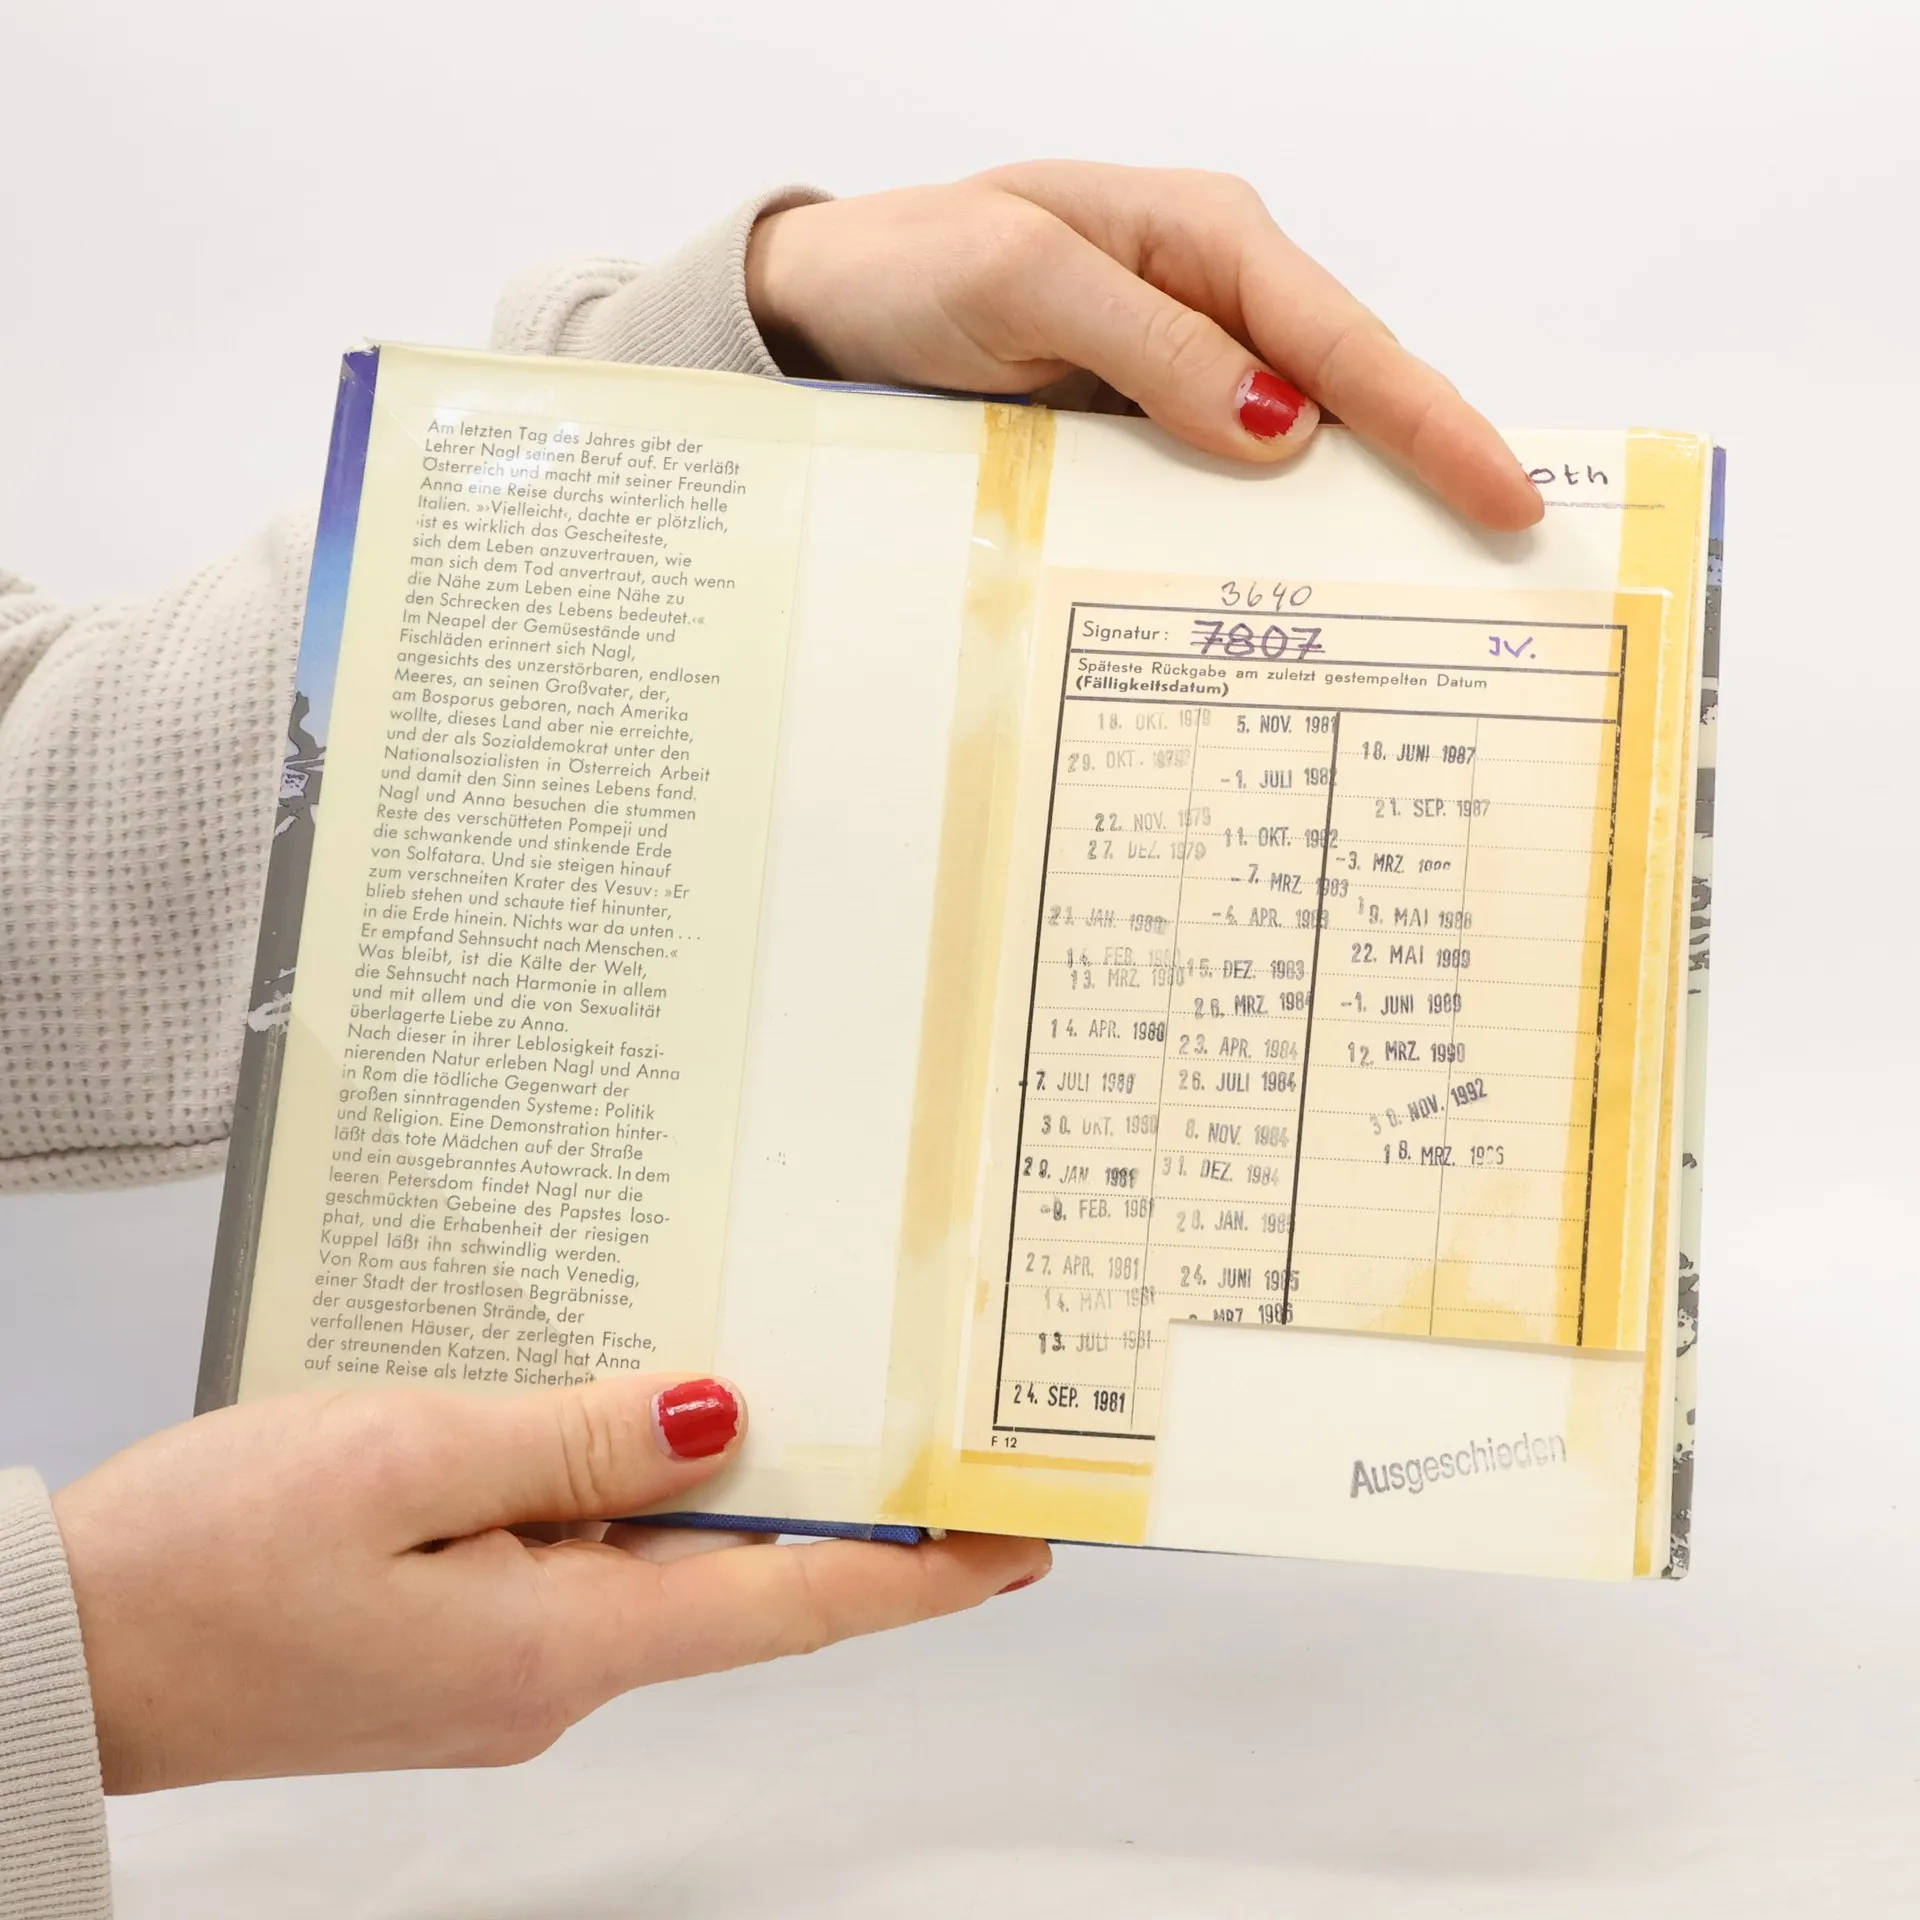 Am letzten Tag des Jahres gibt der
Lehrer Nagl seinen Beruf auf. Er verläßt
Österreich und macht mit seiner Freundin
Anna eine Reise durchs winterlich helle
Italien. »›Vielleicht‹, dachte er plötzlich,
›ist es wirklich das Gescheiteste,
sich dem Leben anzuvertrauen, wie
man sich dem Tod anvertraut, auch wenn
die Nähe zum Leben eine Nähe zu
den Schrecken des Lebens bedeutet.‹«
Im Neapel der Gemüsestände und
Fischläden erinnert sich Nagl,
angesichts des unzerstörbaren, endlosen
Meeres, an seinen Großvater, der,
am Bosporus geboren, nach Amerika
wollte, dieses Land aber nie erreichte,
und der als Sozialdemokrat unter den
Nationalsozialisten in Österreich Arbeit
und damit den Sinn seines Lebens fand.
Nagl und Anna besuchen die stummen
Reste des verschütteten Pompeji und
die schwankende und stinkende Erde
von Solfatara. Und sie steigen hinauf
zum verschneiten Krater des Vesuv: »Er
blieb stehen und schaute tief hinunter,
in die Erde hinein. Nichts war da unten ...
Er empfand Sehnsucht nach Menschen.«
Was bleibt, ist die Kälte der Welt,
die Sehnsucht nach Harmonie in allem
und mit allem und die von Sexualität
überlagerte Liebe zu Anna.
Nach dieser in ihrer Leblosigkeit faszi-
nierenden Natur erleben Nagl und Anna
in Rom die tödliche Gegenwart der
großen sinntragenden Systeme: Politik
und Religion. Eine Demonstration hinter-
läßt das tote Mädchen auf der Straße
und ein ausgebranntes Autowrack. In dem
leeren Petersdom findet Nagl nur die
geschmückten Gebeine des Papstes Ioso-
phat, und die Erhabenheit der riesigen
Kuppel läßt ihn schwindlig werden.
Von Rom aus fahren sie nach Venedig,
einer Stadt der trostlosen Begräbnisse,
der ausgestorbenen Strände, der
verfallenen Häuser, der zerlegten Fische,
der streunenden Katzen. Nagl hat Anna
auf seine Reise als letzte Sicherheit
oth
3640
Signatur: 7807 JV.
Späteste Rückgabe am zuletzt gestempelten Datum
(Fälligkeitsdatum)
18. OKT. 1979
29. OKT. 1979
22. NOV. 1979
27. DEZ. 1979
21. JAN. 1980
14. FEB. 1980
13. MRZ. 1980
14. APR. 1980
7. JULI 1980
30. OKT. 1980
20. JAN. 1981
-9. FEB. 1981
27. APR. 1981
14. MAI 1981
13. JULI 1981
24. SEP. 1981
F 12
5. NOV. 1981
-1. JULI 1982
11. OKT. 1982
-7. MRZ 1983
-4. APR. 1983
15. DEZ. 1983
26. MRZ. 1984
23. APR. 1984
26. JULI 1984
8. NOV. 1984
31. DEZ. 1984
28. JAN. 1985
24. JUNI 1985
MRZ 1986
18. JUNI 1987
21. SEP. 1987
-3. MRZ
MAI 1988
22. MAI 1989
-1. JUNI 1989
12. MRZ. 1990
30. NOV. 1992
18. MRZ.
Ausgeschieden